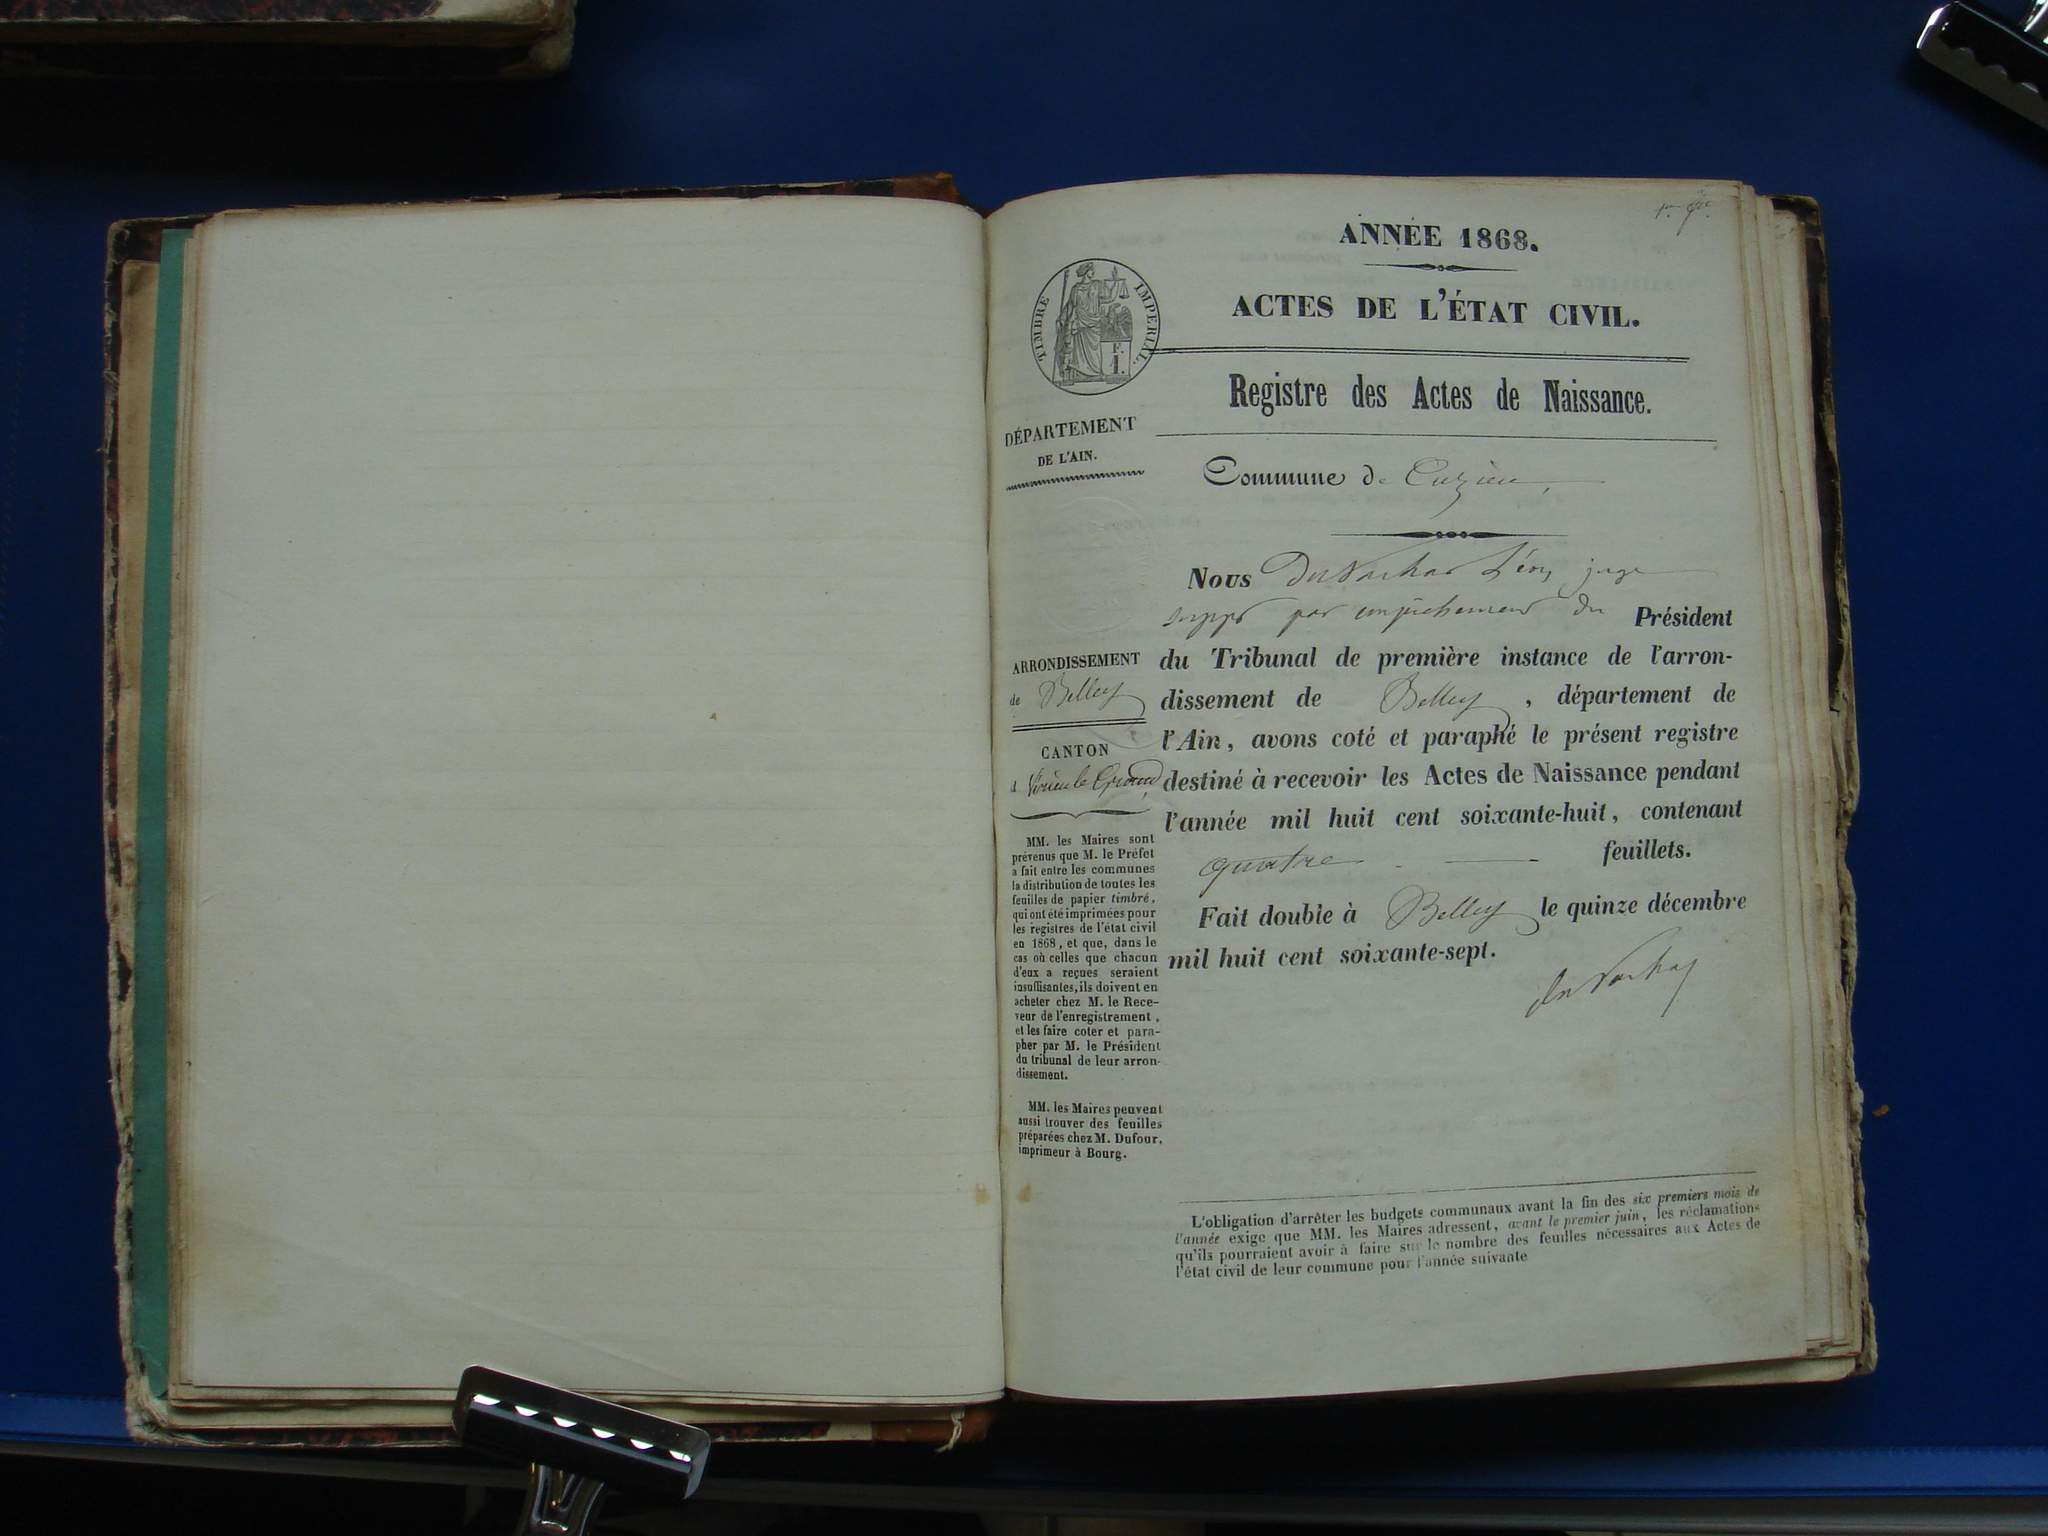 ANNÉE 1868.
ACTES DE L'ÉTAT CIVIL.
TIMBRE IMPERIAL.
F.
1.
Registre des Actes de Naissance.
DÉPARTEMENT
DE L'AIN.
Commune de Cuzieu
ARRONDISSEMENT
de Belley
CANTON
d Virieu le Grand
MM. les Maires sont
prévenus que M. le Préfet
a fait entre les communes
la distribution de toutes les
feuilles de papier timbré,
qui ont été imprimées pour
les registres de l'état civil
en 1868, et que, dans le
cas où celles que chacun
d'eux a reçues seraient
insuffisantes, ils doivent en
acheter chez M. le Rece-
veur de l'enregistrement,
et les faire coter et para-
pher par M. le Président
du tribunal de leur arron-
dissement.
MM. les Maires peuvent
aussi trouver des feuilles
préparées chez M. Dufour,
imprimeur à Bourg.
Nous Léon, juge
supp par empêchement du Président
du Tribunal de première instance de l'arron-
dissement de Belley, département de
l'Ain, avons coté et paraphé le présent registre
destiné à recevoir les Actes de Naissance pendant
l'année mil huit cent soixante-huit, contenant
quatre feuillets.
Fait double à Belley le quinze décembre
mil huit cent soixante-sept.
L'obligation d'arrêter les budgets communaux avant la fin des six premiers mois de
l'année exige que MM. les Maires adressent, avant le premier juin, les réclamations
qu'ils pourraient avoir à faire sur le nombre des feuilles nécessaires aux Actes de
l'état civil de leur commune pour l'année suivante